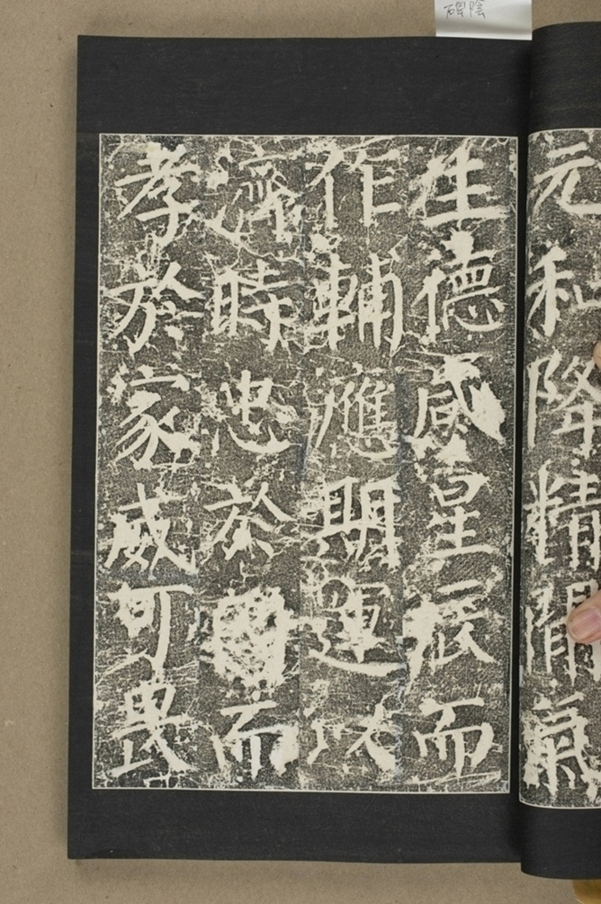 碑陰
元和降精間氣
生德感星辰而
作輔應期運以
濟時忠於國而
孝於家威可畏